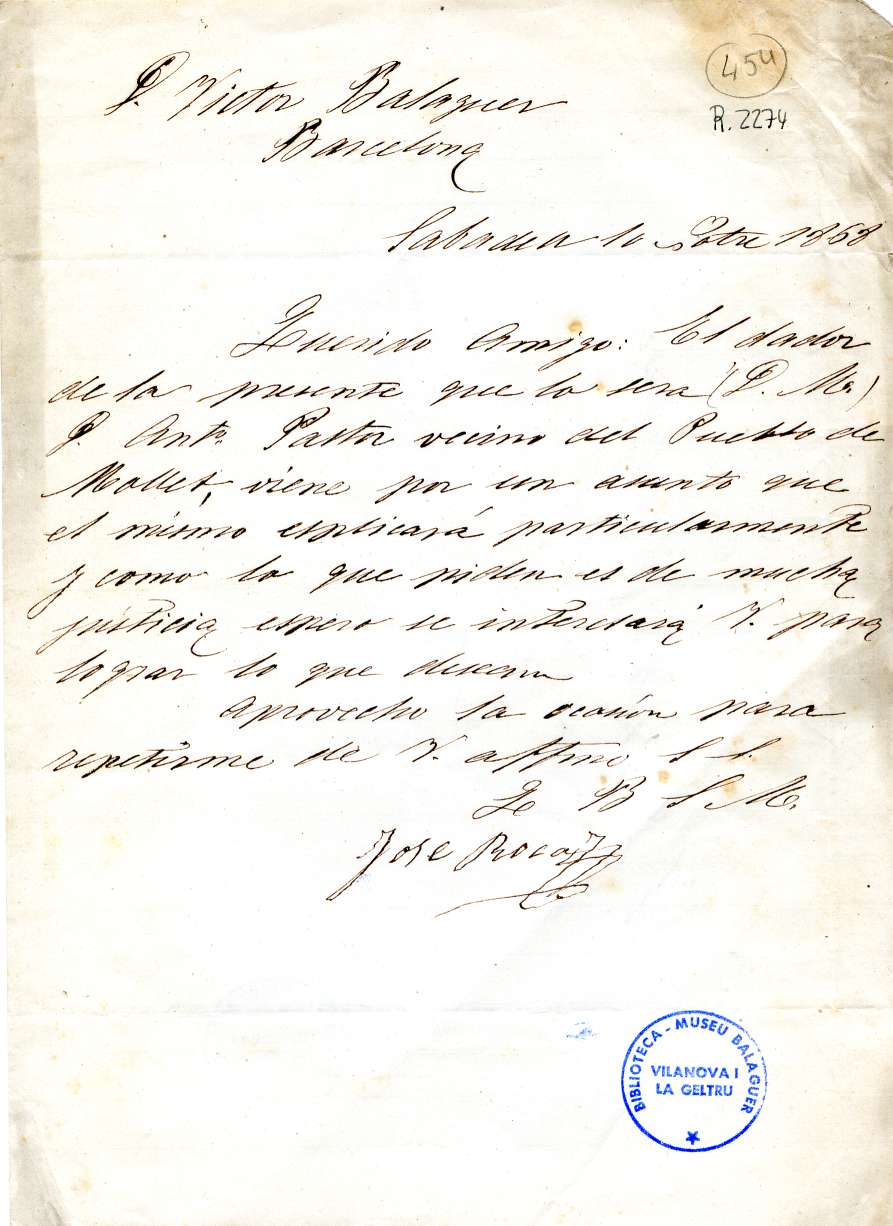 454
R. 2274
D. Victor Balaguer
Barcelona
Sabadell 10 1868
Querido Amigo: El dador
de la presente que lo sera (D. M.)
D. Antº. Pastor vecino del Pueblo de
Mollet, viene por un asunto que
el mismo esplicará particularmente
y como lo que piden es de mucha
justicia espero se interesará V. para
lograr lo que desean
Aprovecho la ocasión para
repetirme de V. affmo S S.
Q B S M.
Jose Roca
BIBLIOTECA - MUSEU BALAGUER
VILANOVA I
LA GELTRU